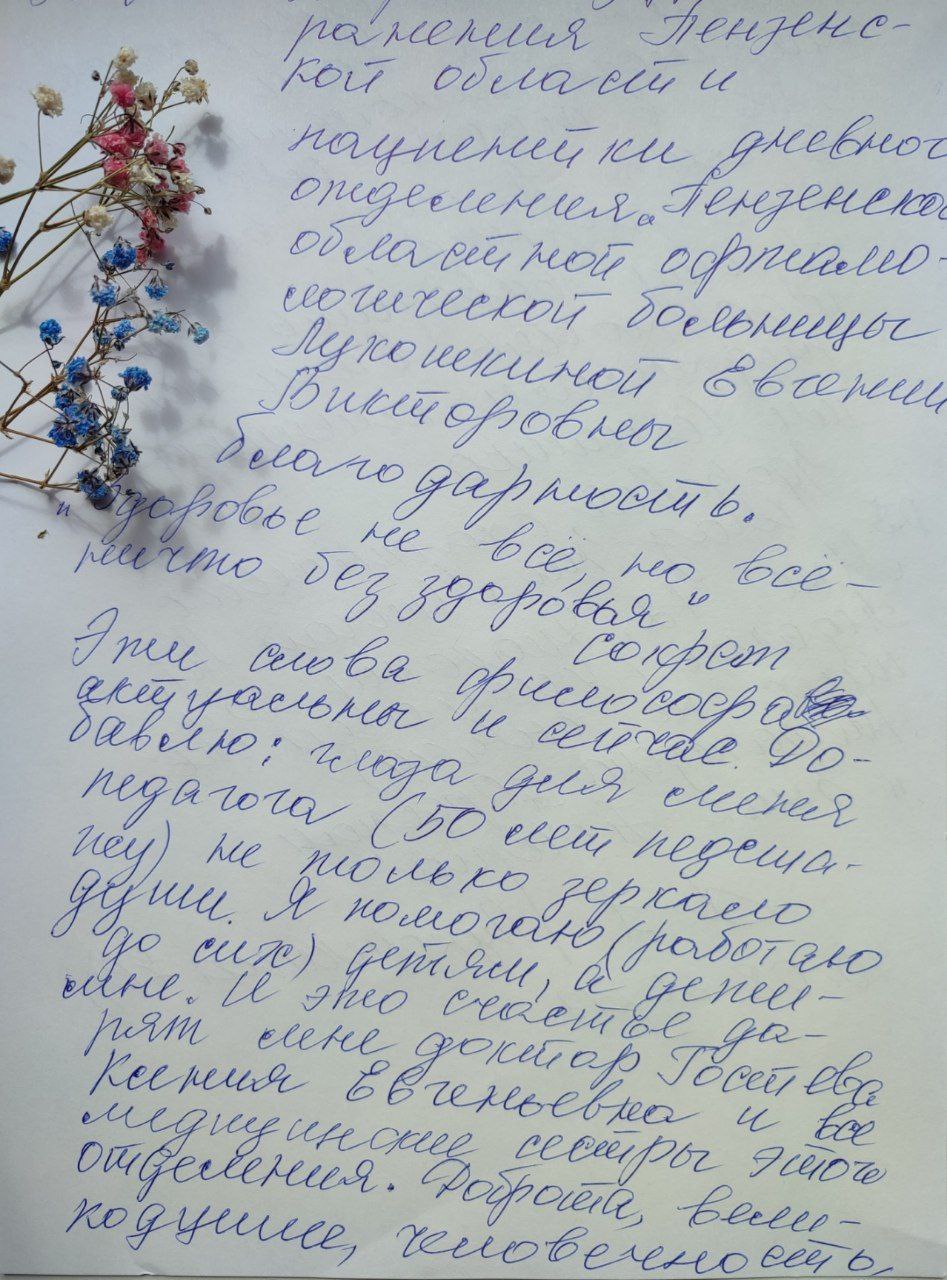 ранения Пензенс-
кой области
пациентки дневног
отделения „Пензенской
областной офтальмо-
логической больницы
Лукошкиной Евгении
Викторовны
благодарность.
"Здоровье не всё, но всё -
ничто без здоровья"
Сократ
Эти слова философа
актуальны и сейчас. До-
бавлю: глаза для меня
педагога (50 лет педста-
жу) не только зеркало
души. Я помогаю (работаю
до сих) детям, а дети -
мне. И это счастье да-
рят мне доктор Гостева
Ксения Евгеньевна и все
медицинские сестры этого
отделения. Доброта, вели-
кодушие, человечность,